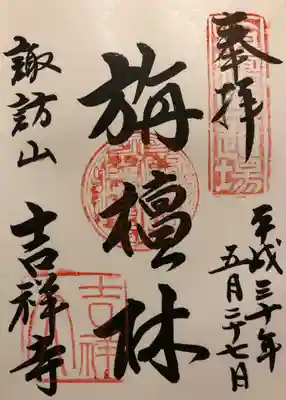 奉拝
平成三十年
五月二十七月
旃檀林
諏訪山
吉祥寺
吉祥